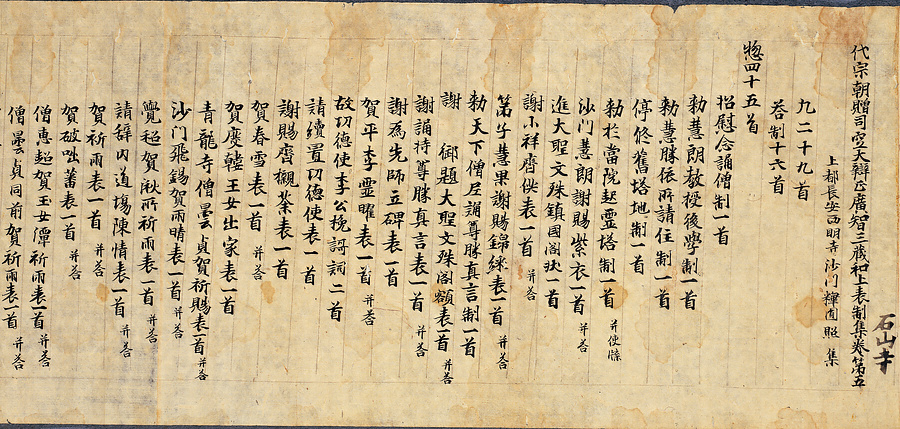 石山寺
代宗朝贈司空大辯正廣智三藏和上表制集卷第五
上都長安西明寺沙門釋圓照集
九二十九首
答制十六首
惣四十五首
招慰念誦僧制一首
勅慧朗教授後學制一首
勅慧勝依所請住制一首
停修舊塔地制一首
勅於當院起靈塔制一首 并使牒
沙門慧朗謝賜紫衣一首 并答
進大聖文殊鎮國閣狀一首
謝小祥齋供表一首 并答
弟子慧果謝賜錦綵表一首 并答
勅天下僧尼誦尊勝真言制一首
謝 御題大聖文殊閣額表一首 并答
謝誦持尊勝真言表一首 并答
謝為先師立碑表一首
賀平李靈曜表一首 并答
故功德使李公挽謌詞二首
請續置功德使表一首
謝賜齋襯茶表一首
賀春雪表一首 并答
賀慶韓王女出家表一首
青龍寺僧曇貞賀祈賜表一首 并答
沙門飛錫賀雨晴表一首 并答
覺超賀湫所祈雨表一首 并答
請辭內道場陳情表一首
賀祈雨表一首 并答
賀破吐蕃表一首 并答
僧惠超賀玉女潭祈雨表一首 并答
僧曇貞同前賀祈雨表一首 并答